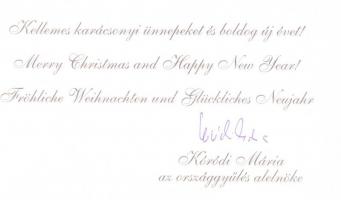 Kellemes karácsonyi ünnepeket és boldog új évet!
Merry Christmas and Happy New Year!
Fröhliche Weihnachten und Glückliches Neujahr
Kóródi Mária
az országgyűlés alelnöke